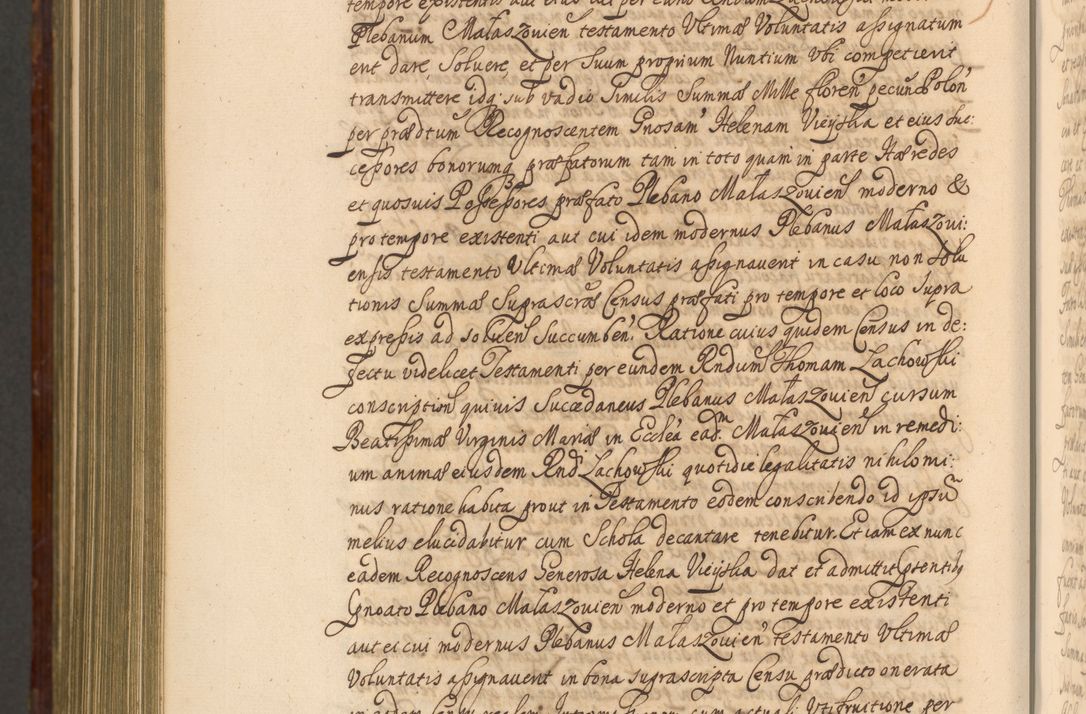 Plebanum Małaszovien testamento Ultimæ Voluntatis assignatum
erit dare, Solvere, et per Suum proprium Nuntium Ubi competierit
transmittere idq sub vadio Similis Summæ Mille floren pecun Polon
per prædtum Recognoscentem Gnosam Helenam Vieyska et eius suc:
cessores bonorumq præfatorum tam in toto quam in parte Hæredes
et quosvis Possessores præfato Plebano Małaszovien moderno &
pro tempore existenti aut cui idem modernus Plebanus Małaszovi:
ensis testamento Ultimæ Voluntatis assignaverit in casu non Solu
tionis Summæ Suprascræ Census præfati pro tempore et loco supra
expressis ad solven Succumben. Ratione cuius quidem Census in de:
fectu videlicet Testamenti per eundem Rndum Thomam Zachowski
conscription quivis Sucædaneus Plebanus Małaszovien cursum
Beatissimæ Virginis Mariæ in Ecclea eadm Małaszovien in remedi:
um animæ eiusdem Rndi Zachowski quotidie legalitatis nihilomi:
nus ratione habita prout in Testamento eodem conscribendo id ipsu
melius elucidabitur cum Schola decantare tenebitur. Et iam ex nunc
eadem Recognoscens Generosa Helena Vieyska dat et admittit
Plebano Małaszovien moderno et pro tempore existenti
aut ei cui modernus Plebanus Małaszovien testamento Ultimæ
Voluntatis assignaverit in bona suprascripta Censu prædicto onerata